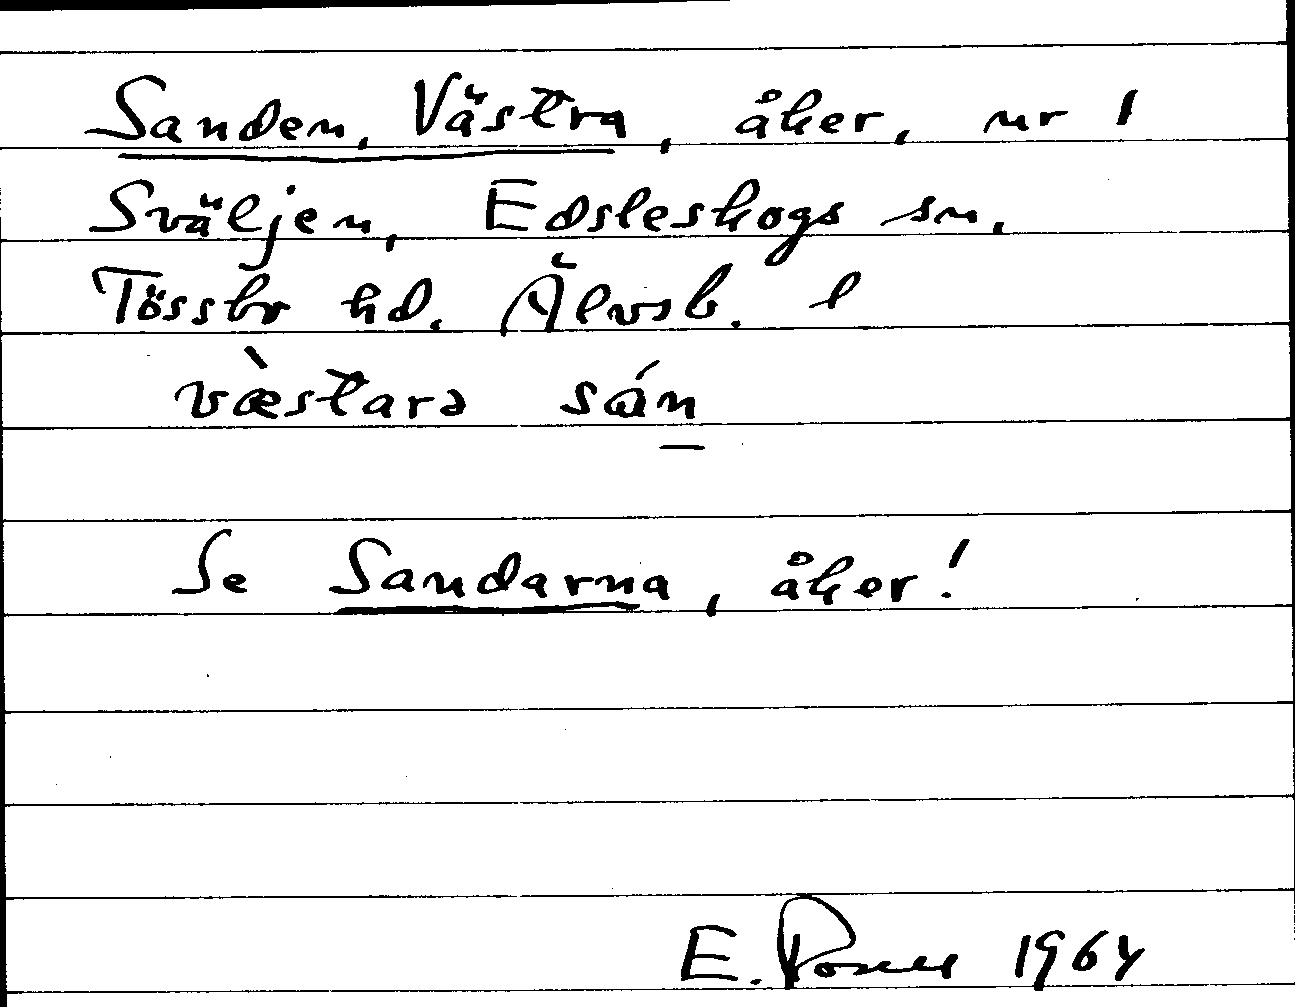 Sanden, Västra, åker, nr 1
Sväljen, Edsleskogs sn.
Tössbo hd. Älvsb. l
væ̀starə sán̲
Se Sandarna, åker!
E. 1964